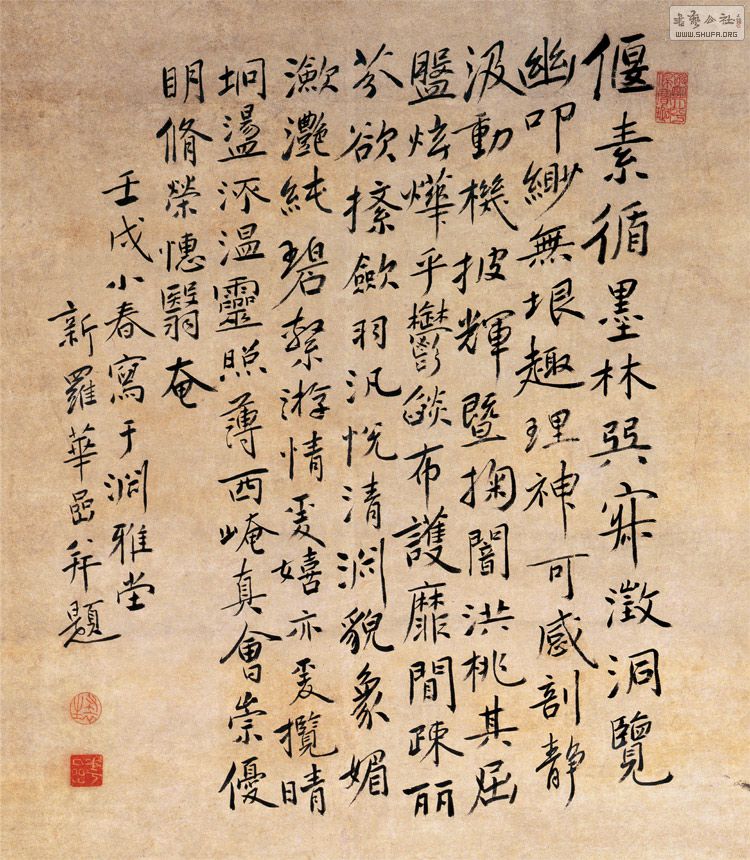 偃素循墨林巽寂澂洞覽
幽叩緲無垠趣理神可感剖靜
汲動機披輝暨掬闇洪桃其屈
盤炫燁乎鬱燄布護靡間疎丽
芬欲揉歛羽汎悅清渊貌象媚
瀲灔純碧縶游情爰嬉亦爰攬晴
坰盪流溫靈照薄西崦真會崇優
明脩榮憓翳奄
壬戌小春寫于渊雅堂
新羅華嵒并題
書藝公社
WWW.SHUFA.ORG